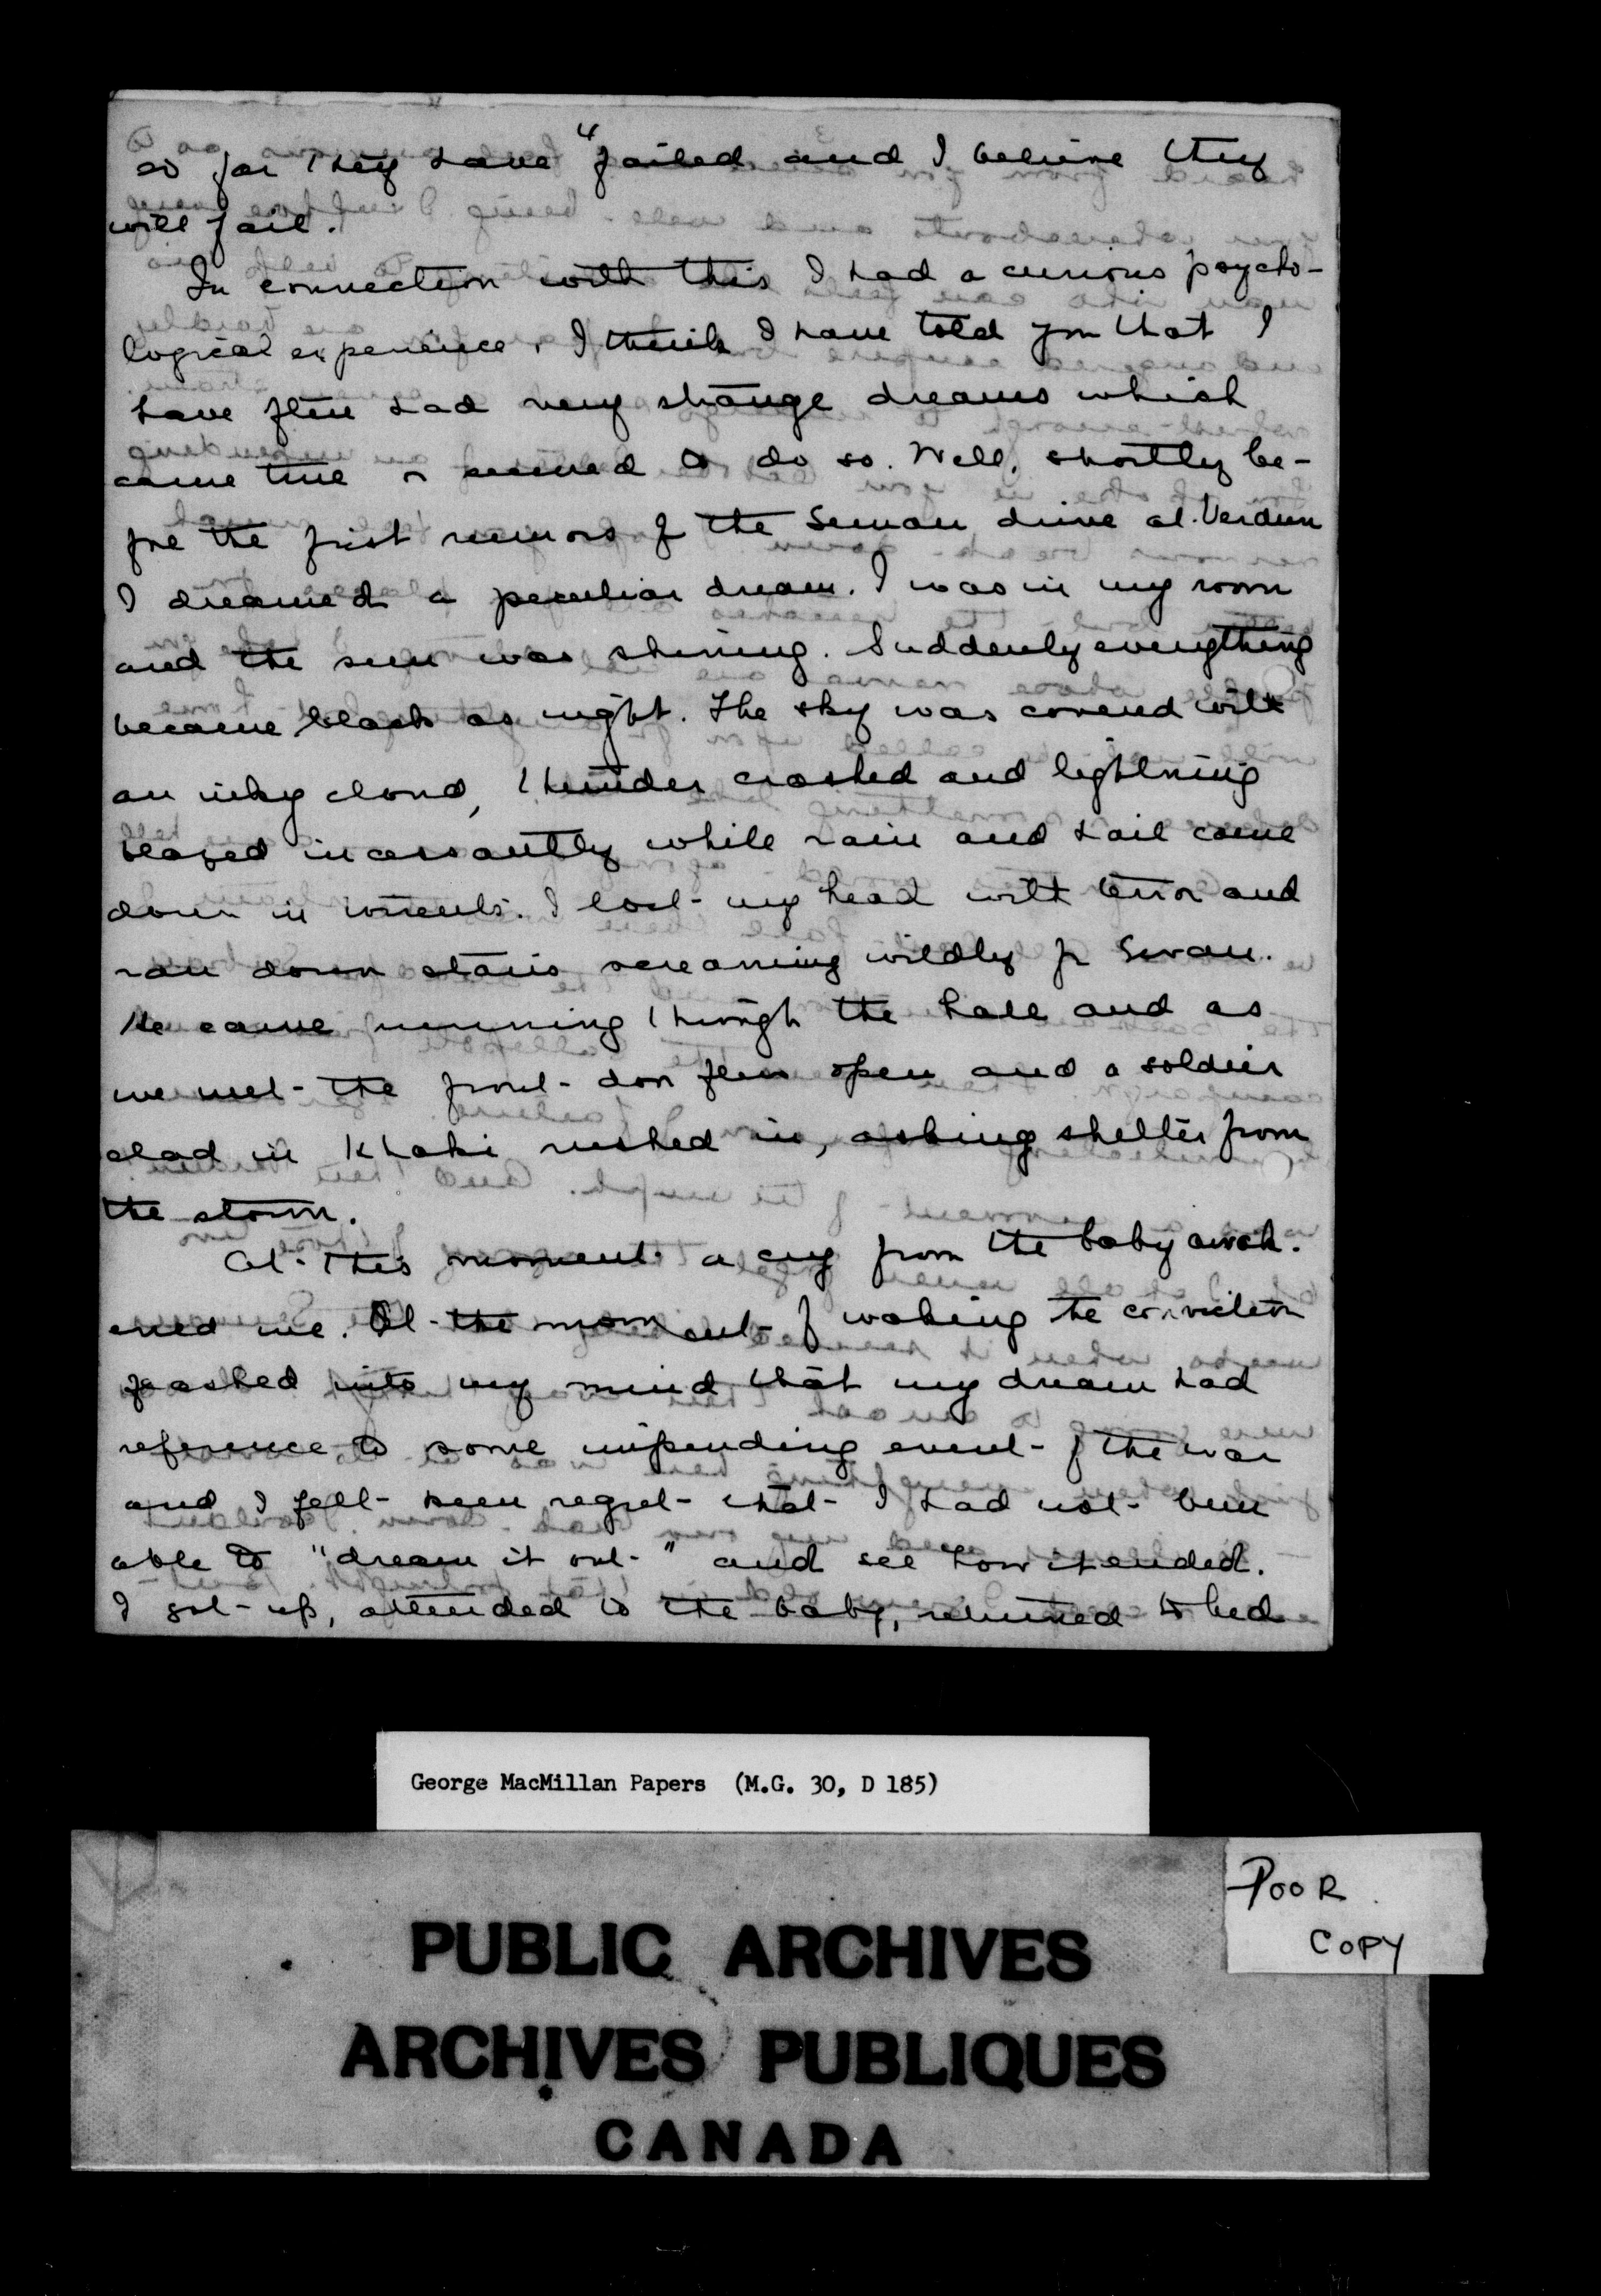 4
so far they have failed and I believe they
will fail.
In connection with this I had a curious psycho-
logical experience. I think I have told you that I
have often had very strange dreams which
came true or seemed to do so. Well, shortly be-
fore the first rumors of the German drive at Verdun
I dreamed a peculiar dream. I was in my room
and the sun was shining. Suddenly everything
became black as night. The sky was covered with
an inky cloud, thunder crashed and lightning
blazed incessantly while rain and hail came
down in torrents. I lost my head with terror and
ran down stairs screaming wildly for Ewan.
He came running through the hall and as
we met the front door flew open and a soldier
clad in Khaki rushed in, asking shelter from
the storm.
At this moment a cry from the baby awak-
ened me. At the moment of waking the conviction
flashed into my mind that my dream had
reference to some impending event of the war
and I felt keen regret that I had not been
able to "dream it out" and see how it ended.
I got up, attended to the baby, returned to bed
George MacMillan Papers (M.G. 30, D 185)
POOR
COPY
PUBLIC ARCHIVES
ARCHIVES PUBLIQUES
CANADA